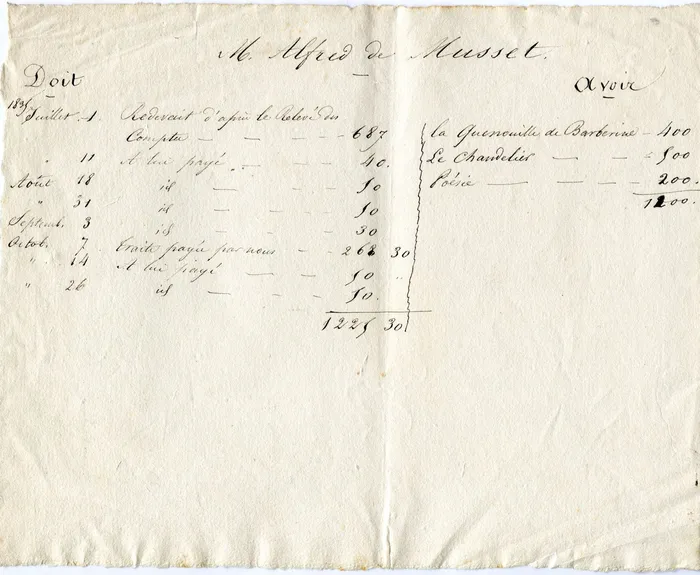 M. Alfred de Musset.
Doit
Avoir
1835
Juillet 1 Redevait d'après le Relevé des
Comptes — — — — 687
" 11 A lui payé — — — 40.
Août 18 id — — — 50
" 31 id — — — 50
Septemb. 3 id — — — 30
Octob. 7 Traite payée par nous — — 268 30
" 14 A lui payé — — — 50 "
" 26 id — — — 50.
1225 30
la Quenouille de Barberine — 400
Le Chandelier — — — 500
Poésie — — — 200.
1100.